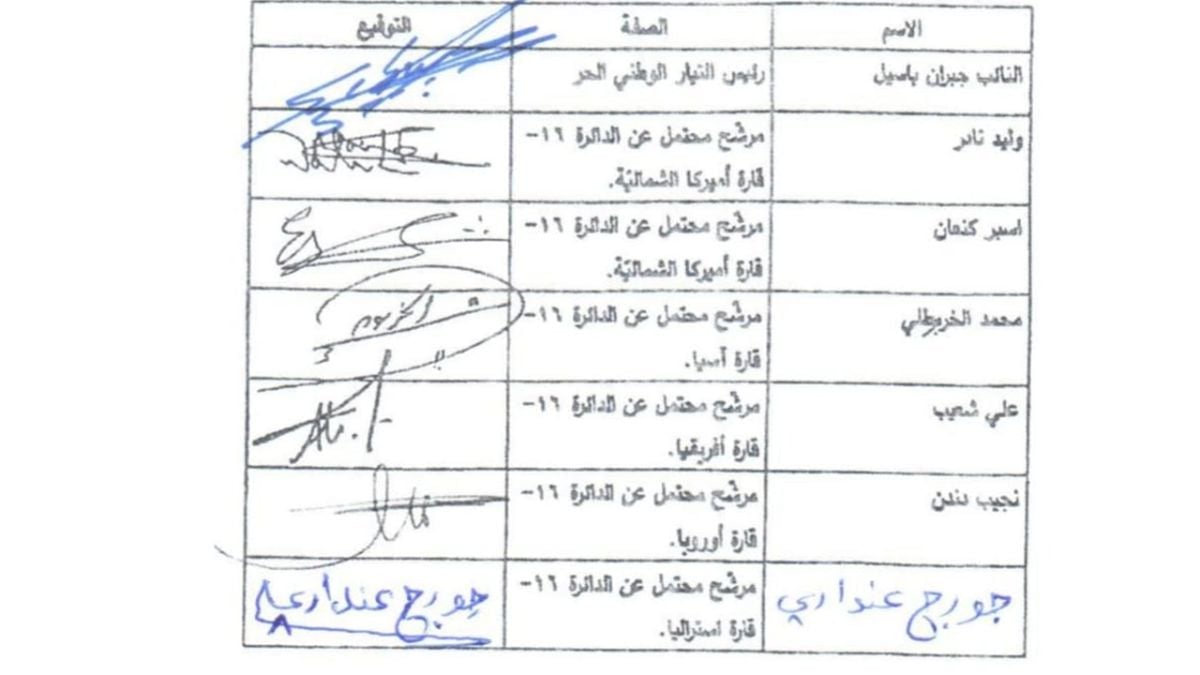 الاسم الصفة التوقيع
النائب جبران باسيل رئيس التيار الوطني الحر
وليد نادر مرشّح محتمل عن الدائرة ١٦-
قارة أميركا الشماليّة.
اسبر كنعان مرشّح محتمل عن الدائرة ١٦-
قارة أميركا الشماليّة.
محمد الخربوطلي مرشّح محتمل عن الدائرة ١٦-
قارة آسيا.
علي شعيب مرشّح محتمل عن الدائرة ١٦-
قارة أفريقيا.
نجيب دندن مرشّح محتمل عن الدائرة ١٦-
قارة أوروبا.
جورج عنداري مرشّح محتمل عن الدائرة ١٦- جورج عنداري
قارة استراليا.